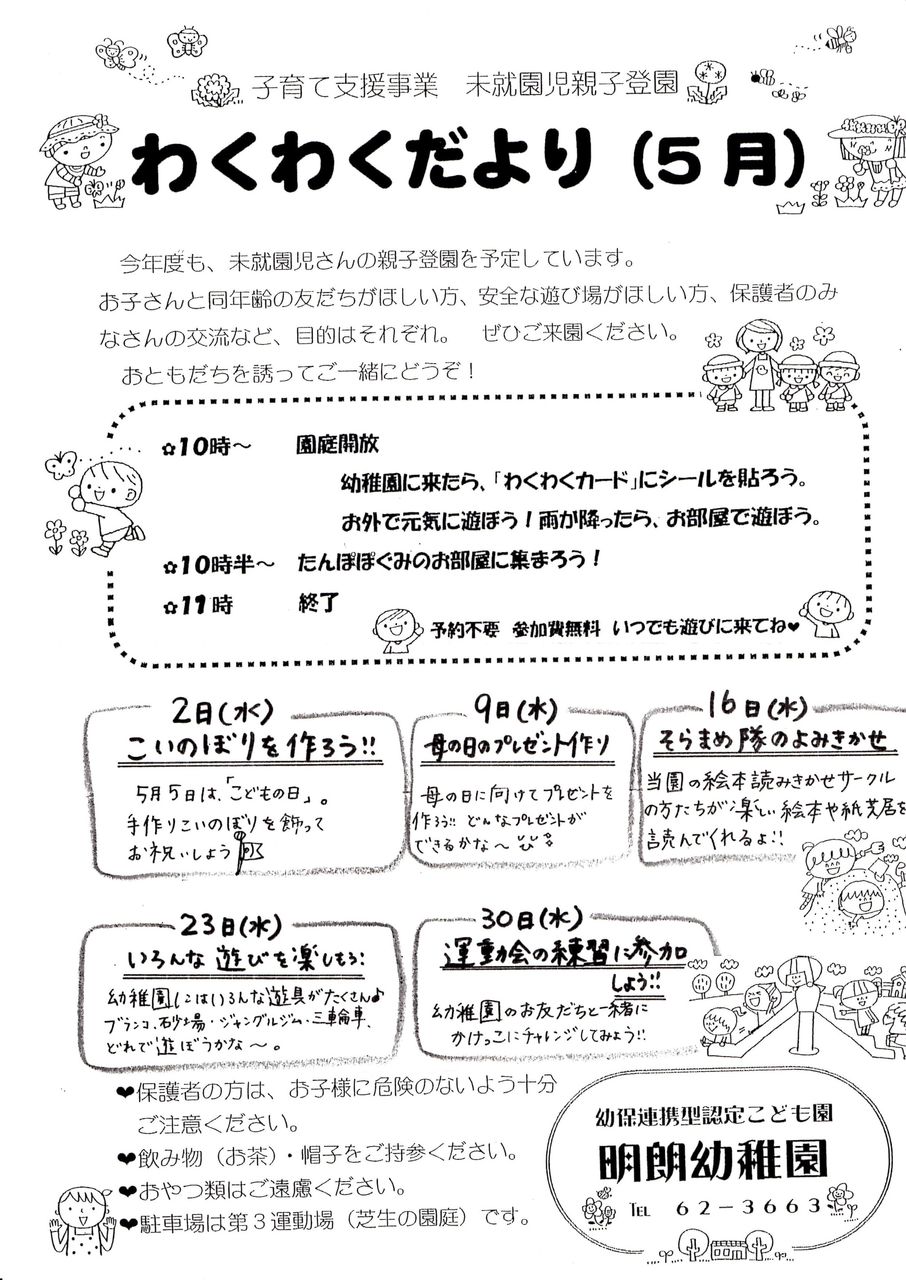 子育て支援事業　未就園児親子登園
わくわくだより（５月）
今年度も、未就園児さんの親子登園を予定しています。
お子さんと同年齢の友だちがほしい方、安全な遊び場がほしい方、保護者のみ
なさんの交流など、目的はそれぞれ。　ぜひご来園ください。
おともだちを誘ってご一緒にどうぞ！
✿10時～　園庭開放
幼稚園に来たら、「わくわくカード」にシールを貼ろう。
お外で元気に遊ぼう！雨が降ったら、お部屋で遊ぼう。
✿10時半～　たんぽぽぐみのお部屋に集まろう！
✿11時　終了
予約不要　参加費無料　いつでも遊びに来てね♥
2日(水)
こいのぼりを作ろう!!
5月5日は、「こどもの日」。
手作りこいのぼりを飾って
お祝いしよう
9日(水)
母の日のプレゼント作り
母の日に向けてプレゼントを
作ろう!! どんなプレゼントが
できるかな～
16日(水)
そらまめ隊のよみきかせ
当園の絵本読みきかせサークル
の方たちが楽しい絵本や紙芝居を
読んでくれるよ!!
23日(水)
いろんな遊びを楽しもう!
幼稚園にはいろんな遊具がたくさん♪
ブランコ、砂場・ジャングルジム・三輪車、
どれで遊ぼうかな～。
30日(水)
運動会の練習に参加
しよう!!
幼稚園のお友だちと一緒に
かけっこにチャレンジしてみよう!!
❤保護者の方は、お子様に危険のないよう十分
ご注意ください。
❤飲み物（お茶）・帽子をご持参ください。
❤おやつ類はご遠慮ください。
❤駐車場は第３運動場（芝生の園庭）です。
幼保連携型認定こども園
明朗幼稚園
TEL　６２－３６６３